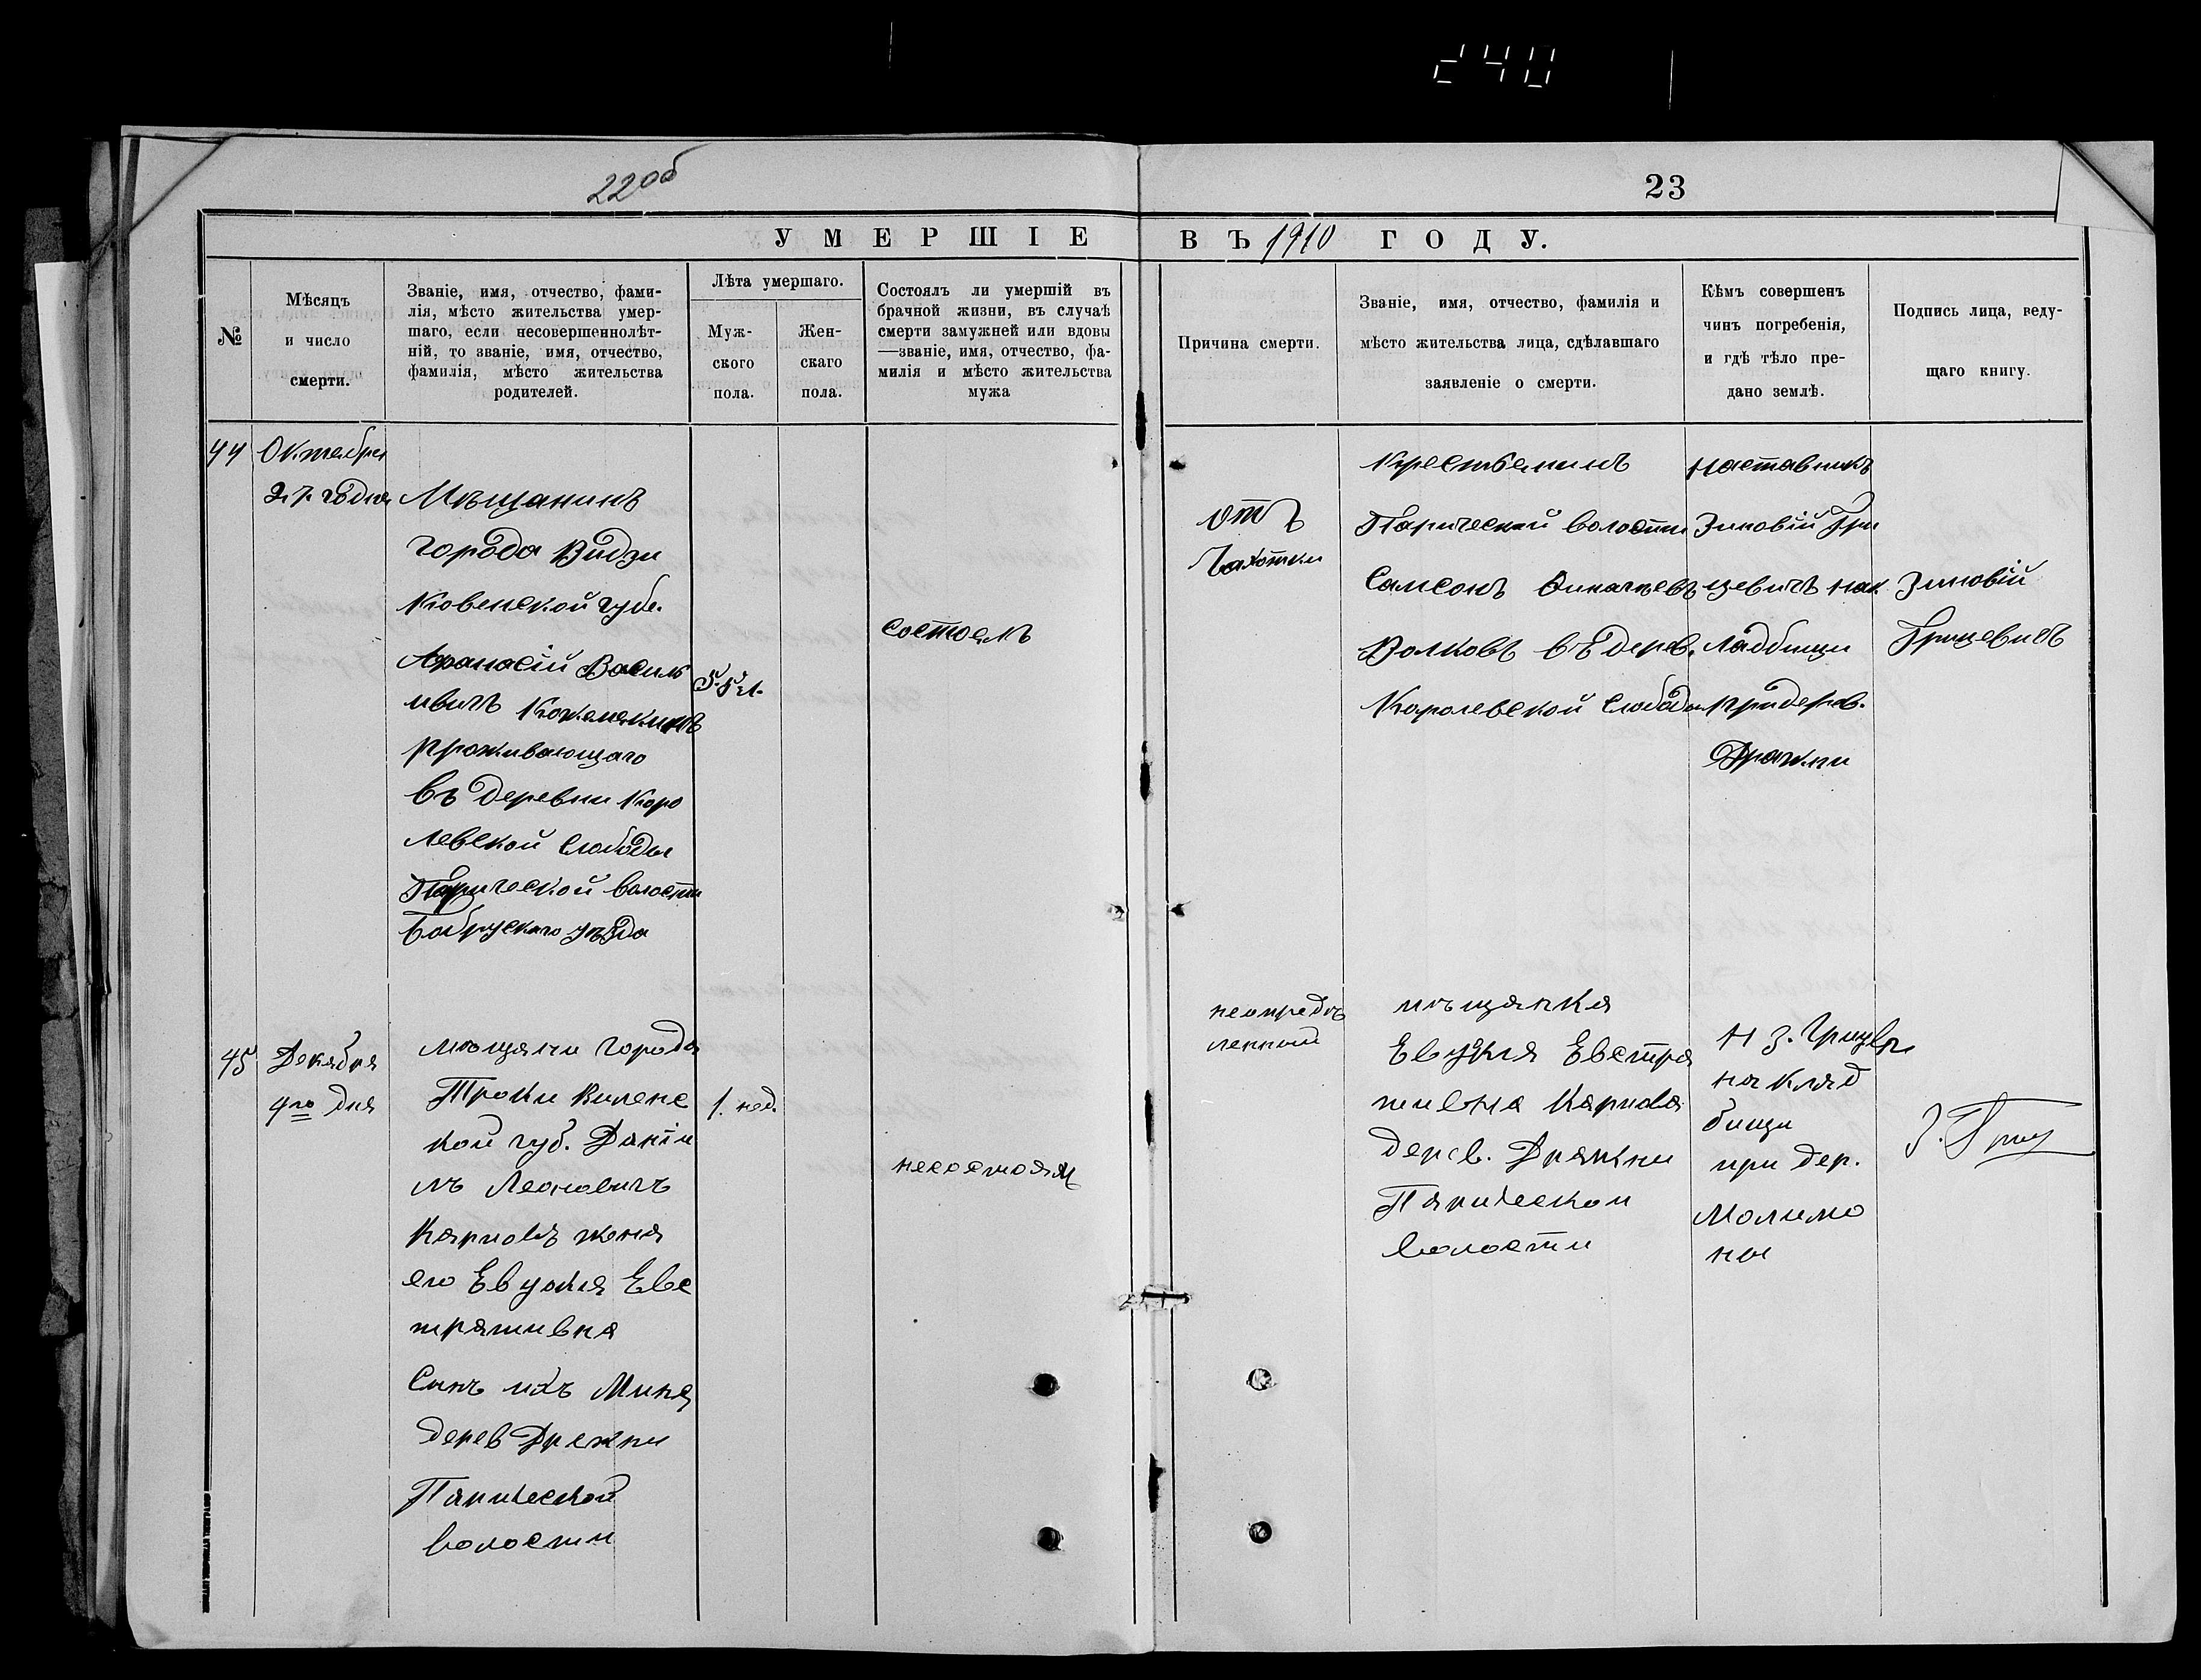 240
22об
23
УМЕРШІЕ ВЪ 1910 ГОДУ.
№
Мѣсяцъ
и число
смерти.
Званіе, имя, отчество, фами-
лія, мѣсто жительства умер-
шаго, если несовершеннолѣт-
ній, то званіе, имя, отчество,
фамилія, мѣсто жительства
родителей.
Лѣта умершаго.
Муж-
ского
пола.
Жен-
скаго
пола.
Состоялъ ли умершій въ
брачной жизни, въ случаѣ
смерти замужней или вдовы
—званіе, имя, отчество, фа-
милія и мѣсто жительства
мужа
Причина смерти.
Званіе, имя, отчество, фамилія и
мѣсто жительства лица, сдѣлавшаго
заявленіе о смерти.
Кѣмъ совершенъ
чинъ погребенія,
и гдѣ тѣло пре-
дано землѣ.
Подпись лица, веду-
щаго книгу.
44
Октября
27 го дня
Мѣщанинъ
города Видзи
Ковенской губе.
Афанасій Василь
ивичъ Кожемякинъ
проживающаго
въ деревни Коро
левской Слободы
Паричской волости
Бобруского уѣзда
55 л.
состоялъ
отъ
Чахотки
Крестьянинъ
Паричской волости
Самсонъ Финагѣевъ
Волковъ въ дерев.
Королевской Слободы
наставникъ
Зиновій Гри
цевичъ нак
ладбищи
при дерев.
Дражни
Зиновій
Грицевичъ
45
Декабря
4го дня
мѣщани города
Троки Виленс
кой губ. Даніи
лъ Леоновичъ
Карповъ жена
его Евдокия Евс
тративна
Сынъ ихъ Мина
дерев Дражни
Паричской
волости
1. нед.
несостоялъ
неопредѣ
ленной
мѣщанка
Евдокия Евстра
тивна Карпова
дерев. Дражни
Паричской
волости
Н З. Грицев
на клад
бищи
при дер.
Молимо
ны
З. Гриц